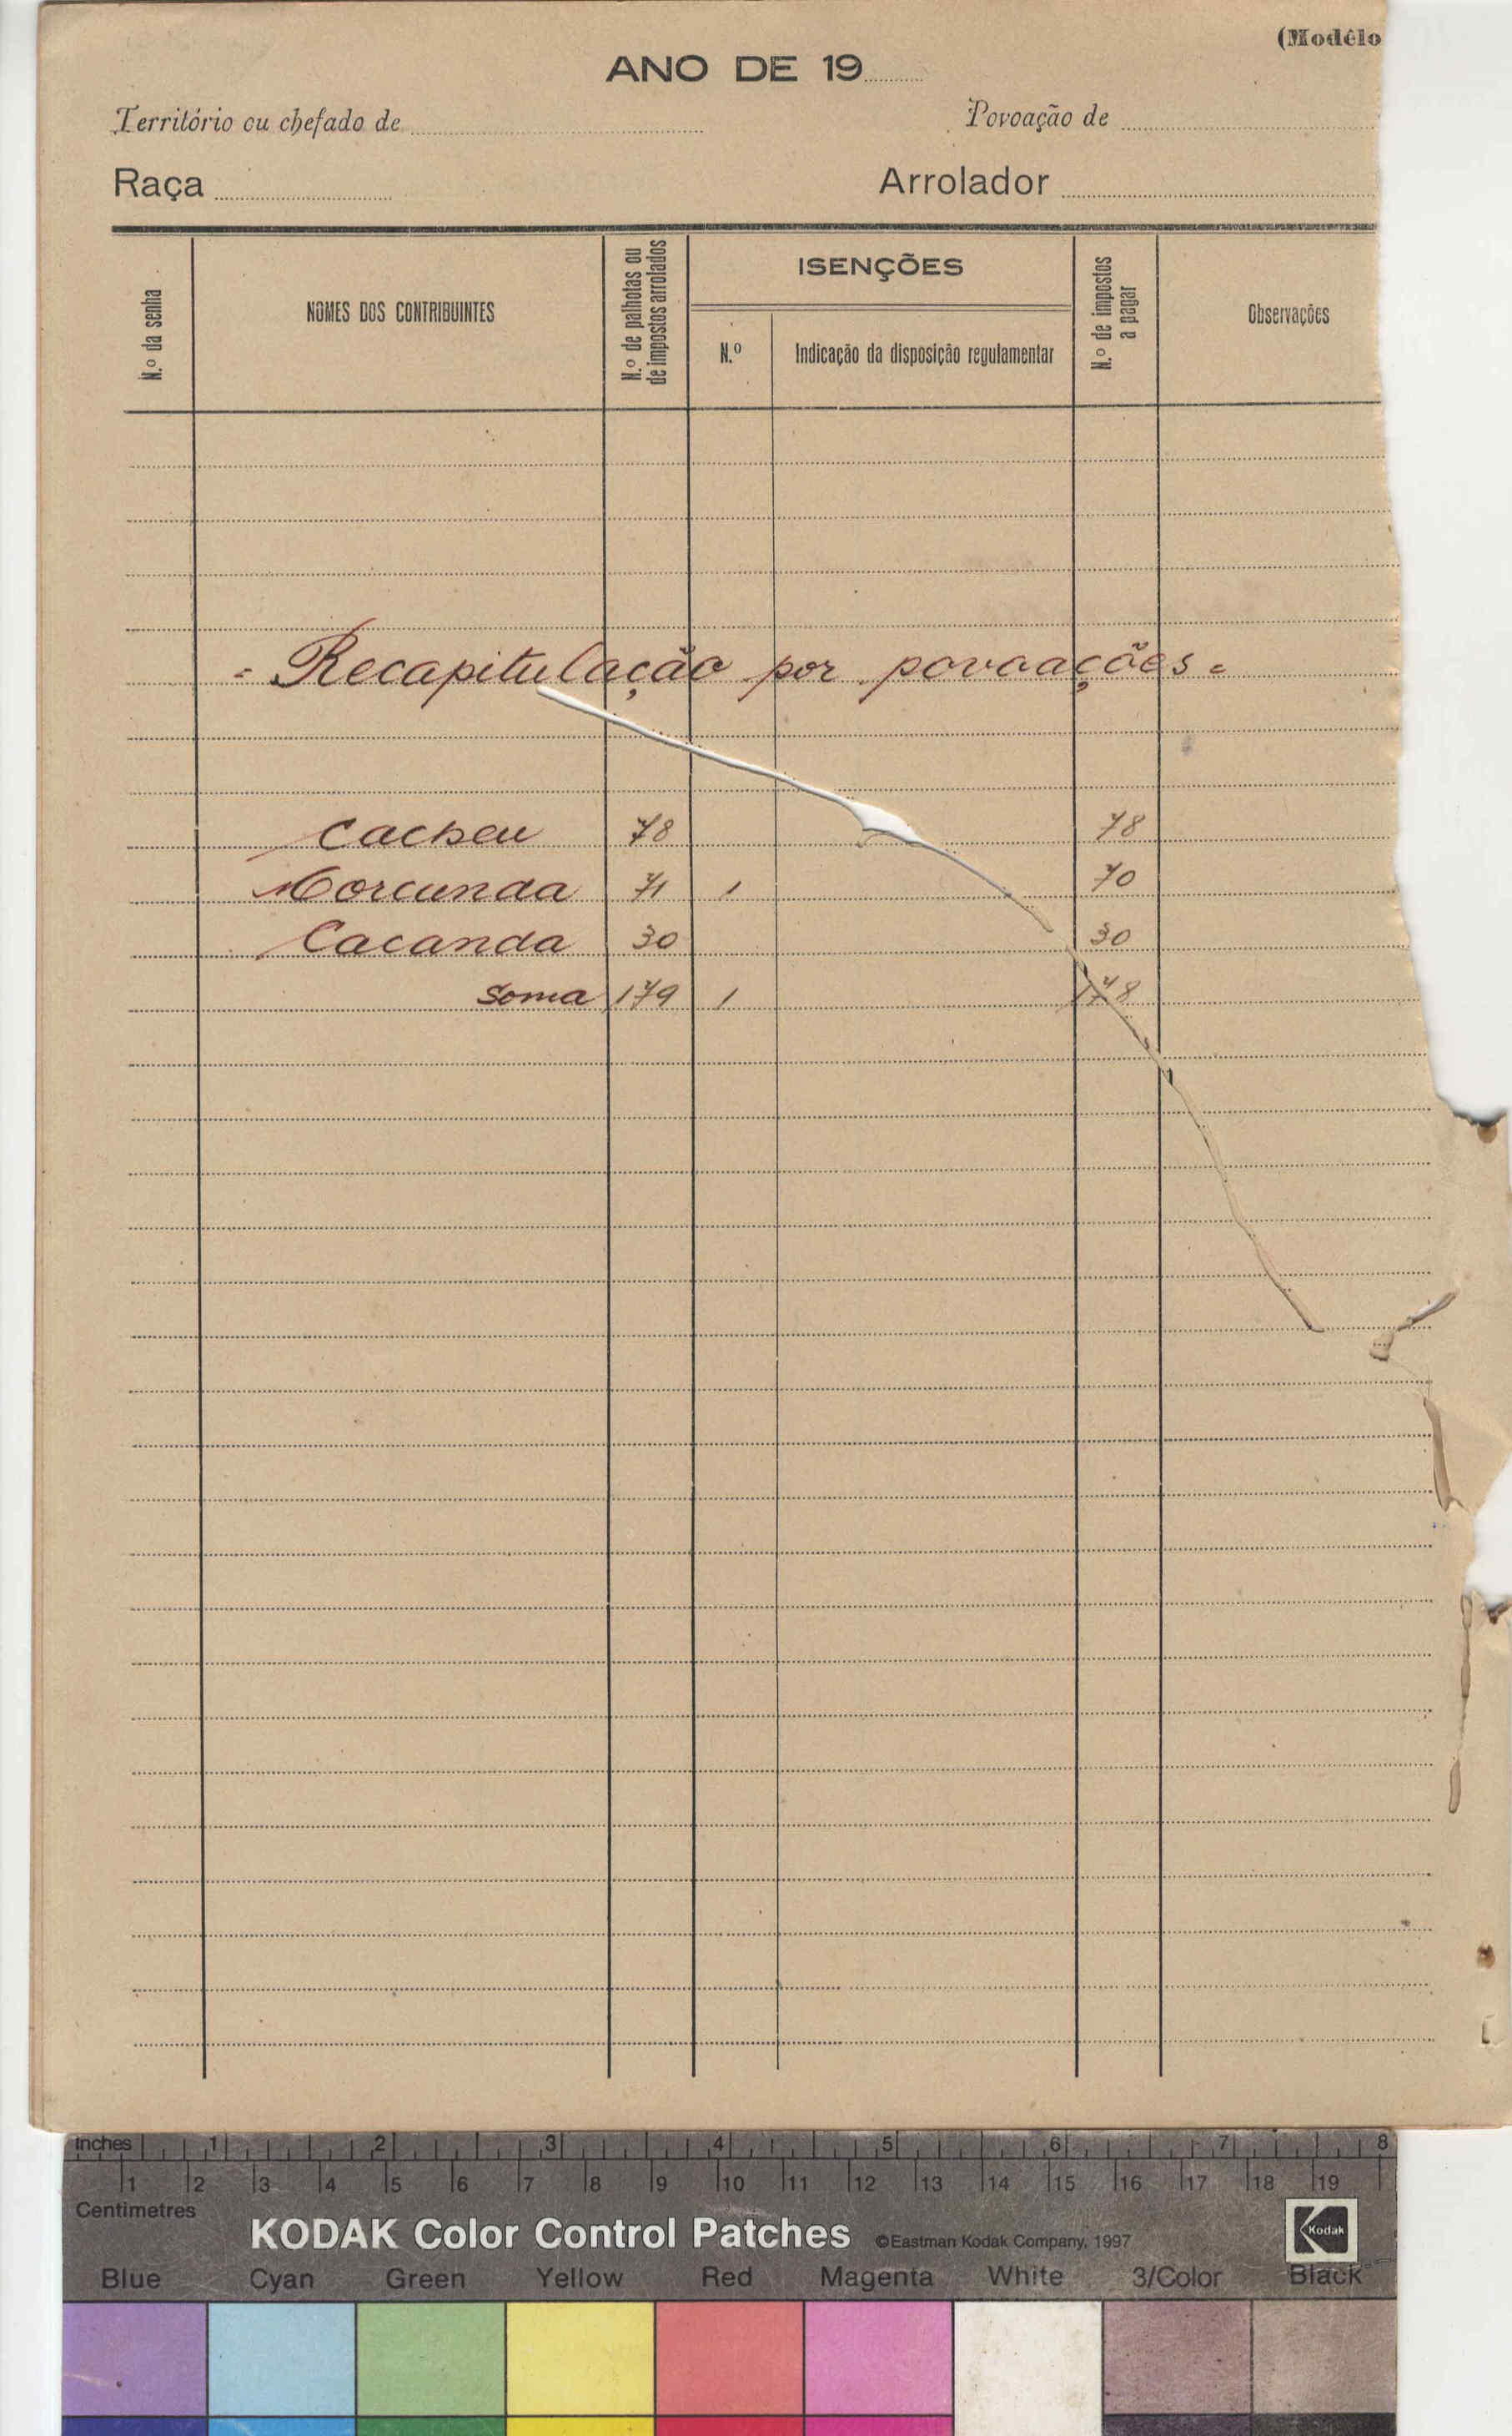 (Modêlo
ANO DE 19
Território ou chefado de
Povoação de
Raça
Arrolador
N.º da senha
NOMES DOS CONTRIBUINTES
N.º de palhotas ou de impostos arrolados
ISENÇÕES
N.º
Indicação da disposição regulamentar
N.º de impostos a pagar
Observações
= Recapitulação por povoações =
Cacheu 78 78
Morcunda 71 1 70
Cacanda 30 30
Soma 179 1 178
Inches 1 2 3 4 5 6 7 8
1 2 3 4 5 6 7 8 9 10 11 12 13 14 15 16 17 18 19
Centimetres
KODAK Color Control Patches ©Eastman Kodak Company, 1997 Kodak
Blue Cyan Green Yellow Red Magenta White 3/Color Black